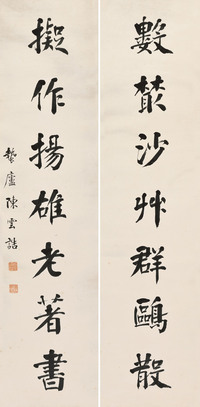 數叢沙艸群鷗散
擬作揚雄老著書
蟄廬陳雲誥